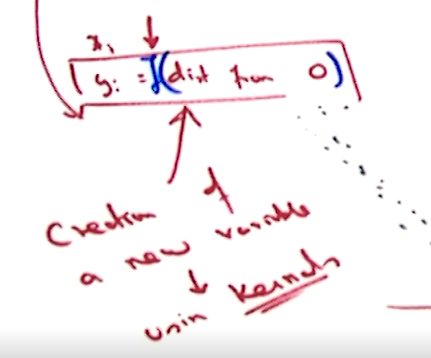 xᵢ
yᵢ = f(dist from 0)
Creation of
a new variable
usin kernels